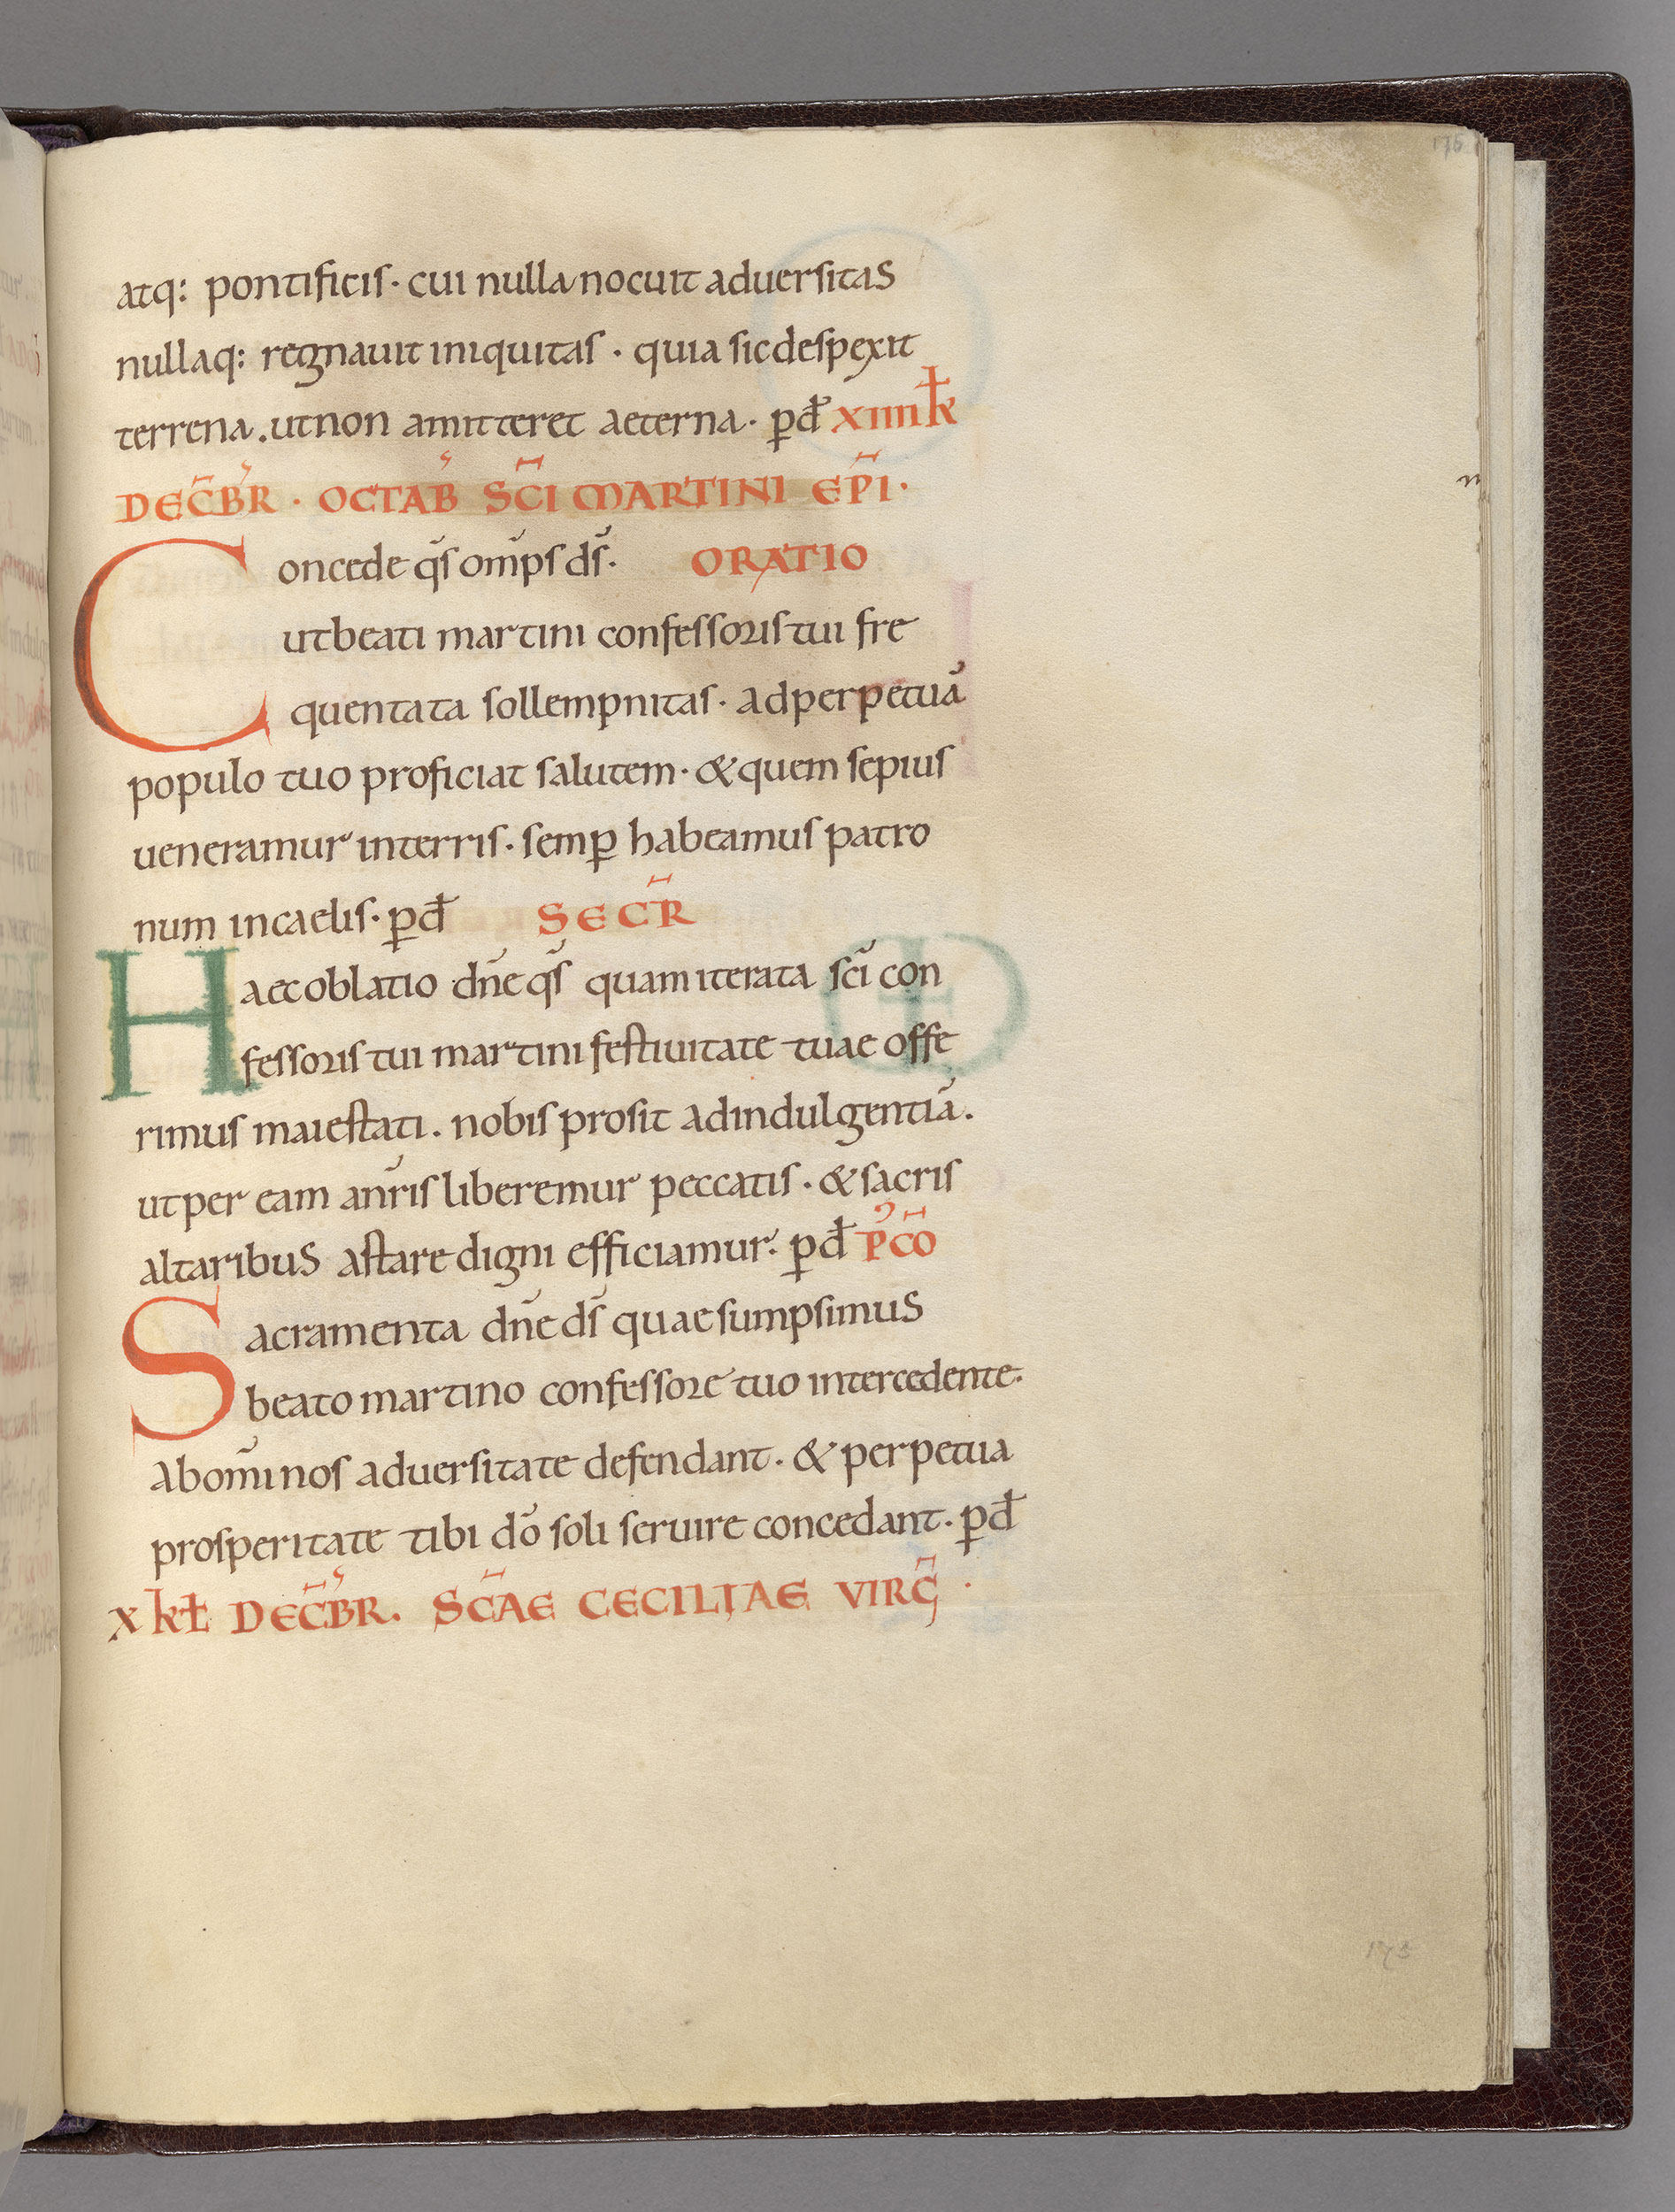 176
atq: pontificis · cui nulla nocuit aduersitas
nullaq: regnauit iniquitas · quia sic despexit
terrena . ut non amitteret aeterna · p̲ đ xiiii k̄
DEC̄B̓R · OCTAB̓ S̄C̄I MARTINI EP̄I ·
Concede q̄s om̄ps d̄s · ORATIO
ut beati martini confessoris tui fre
quentata sollempnitas · ad perpetuā
populo tuo proficiat salutem · & quem sepius
ueneramur in terris · semꝑ habeamus patro
num in caelis · ꝑ đ SECR̄
Haec oblatio dn̄e q̄s quam iterata sc̄i con
fessoris tui martini festiuitate tuae offe
rimus maiestati . nobis prosit ad indulgentiā .
ut per eam a nr̄is liberemur peccatis · & sacris
altaribus astare digni efficiamur · ꝑ đ P̓C̄O
Sacramenta dn̄e d̄s quae sumpsimus
beato martino confessore tuo intercedente ·
ab om̄i nos aduersitate defendant · & perpetua
prosperitate tibi dō soli seruire concedant · ꝑ đ
x kł DEC̄B̓R . SC̄AE CECILIAE VIRḠ ·
175